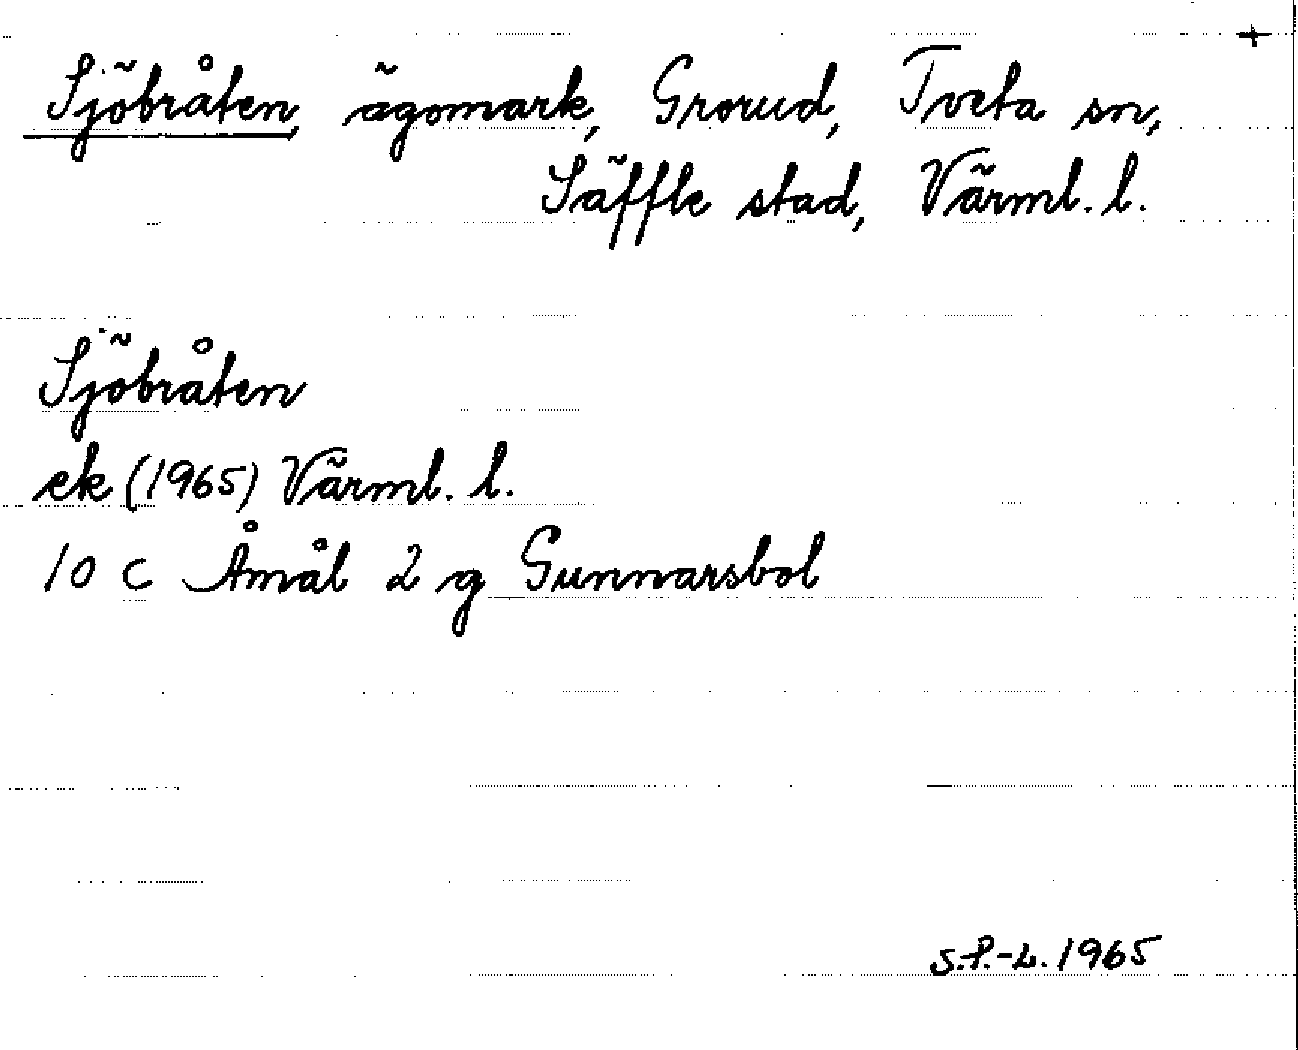 +
Sjöbråten, ägomark, Grorud, Tveta sn,
Säffle stad, Värml. l.
Sjöbråten
ek (1965) Värml. l.
10 c Åmål 2 g Gunnarsbol
S.P.-L. 1965